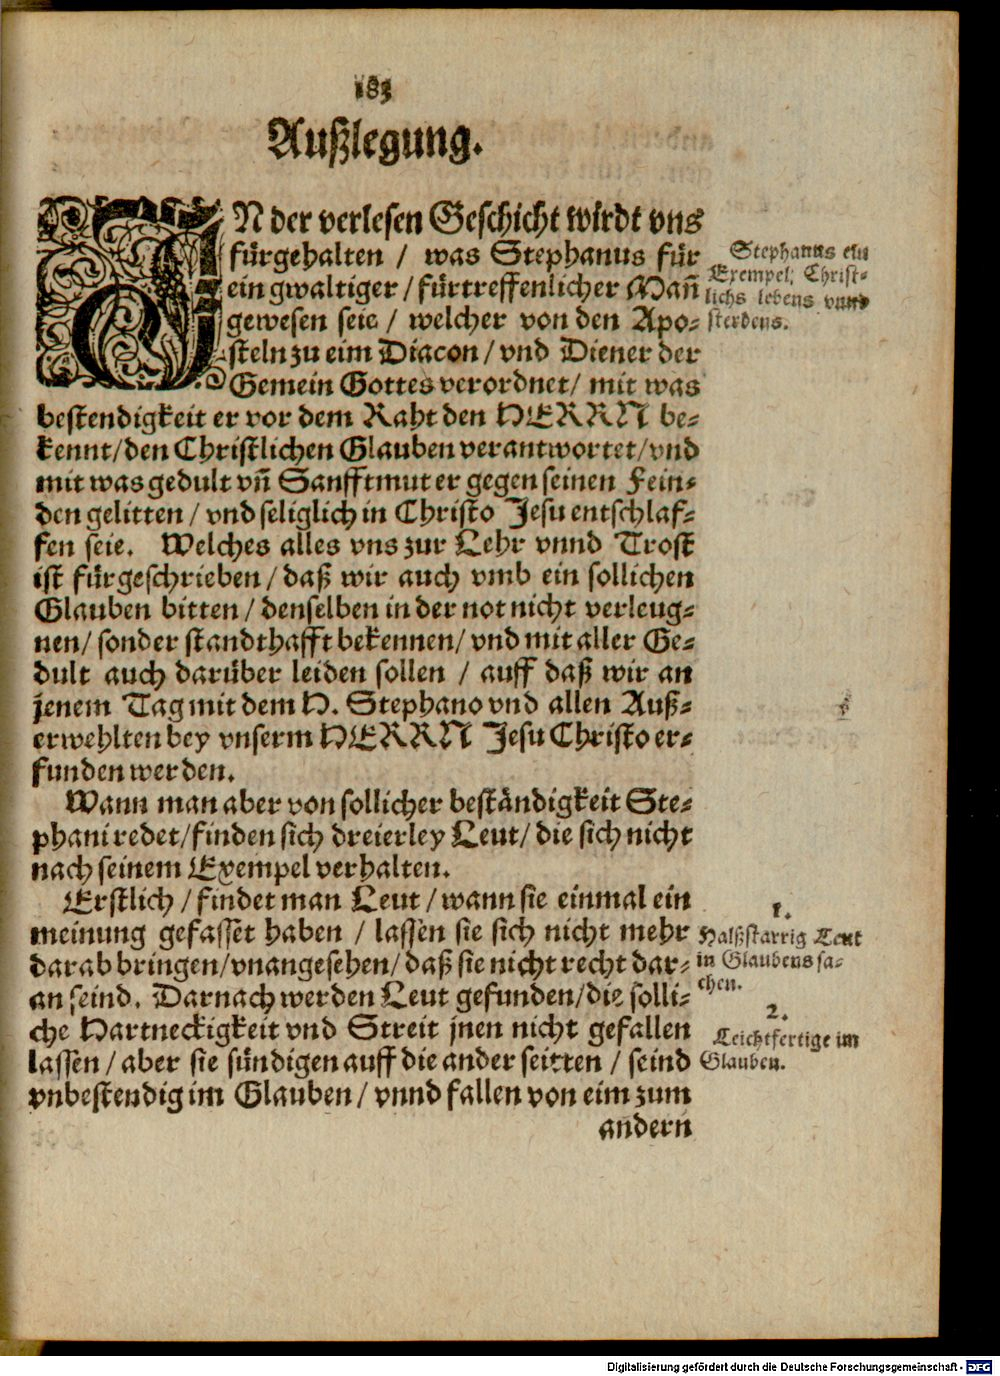 183
Außlegung.
IN der verlesen Geschicht wirdt vns
fürgehalten / was Stephanus für
ein gwaltiger / fürtreffenlicher Mañ
gewesen seie / welcher von den Apo-
steln zu eim Diacon / vnd Diener der
Gemein Gottes verordnet / mit was
bestendigkeit er vor dem Raht den HERRN be-
kennt / den Christlichen Glauben verantwortet / vnd
mit was gedult vñ Sanfftmut er gegen seinen Fein-
den gelitten / vnd seliglich in Christo Jesu entschlaf-
fen seie. Welches alles vns zur Lehr vnnd Trost
ist fürgeschrieben / daß wir auch vmb ein sollichen
Glauben bitten / denselben in der not nicht verleug-
nen / sonder standthafft bekennen / vnd mit aller Ge-
dult auch darüber leiden sollen / auff daß wir an
jenem Tag mit dem H. Stephano vnd allen Auß-
erwehlten bey vnserm HERRN Jesu Christo er-
funden werden.
Wann man aber von sollicher beständigkeit Ste-
phani redet / finden sich dreierley Leut / die sich nicht
nach seinem Exempel verhalten.
Erstlich / findet man Leut / wann sie einmal ein
meinung gefasset haben / lassen sie sich nicht mehr
darab bringen / vnangesehen / daß sie nicht recht dar-
an seind. Darnach werden Leut gefunden / die solli-
che Hartneckigkeit vnd Streit jnen nicht gefallen
lassen / aber sie sündigen auff die ander seitten / seind
vnbestendig im Glauben / vnnd fallen von eim zum
andern
Stephanus ein
Exempel, Christ-
lichs lebens vnnd
sterbens.
1.
Halßstarrig Leut
in Glaubens sa-
chen.
2.
Leichtfertige im
Glauben.
Digitalisierung gefördert durch die Deutsche Forschungsgemeinschaft - DFG